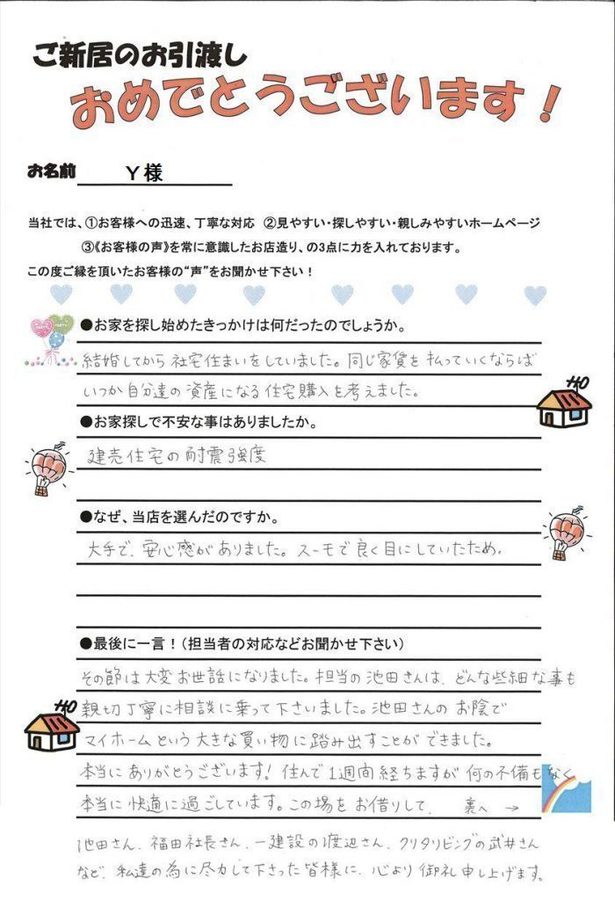 ご新居のお引渡し
おめでとうございます！
お名前 Y様
当社では、①お客様への迅速、丁寧な対応 ②見やすい・探しやすい・親しみやすいホームページ
③《お客様の声》を常に意識したお店造り、の3点に力を入れております。
この度ご縁を頂いたお客様の“声”をお聞かせ下さい！
●お家を探し始めたきっかけは何だったのでしょうか。
結婚してから社宅住まいをしていました。同じ家賃を払っていくならば
いつか自分達の資産になる住宅購入を考えました。
●お家探しで不安な事はありましたか。
建売住宅の耐震強度
●なぜ、当店を選んだのですか。
大手で、安心感がありました。スーモで良く目にしていたため。
●最後に一言！（担当者の対応などお聞かせ下さい）
その節は大変お世話になりました。担当の池田さんは、どんな些細な事も
親切丁寧に相談に乗って下さいました。池田さんのお陰で
マイホームという大きな買い物に踏み出すことができました。
本当にありがとうございます！住んで1週間経ちますが何の不備もなく
本当に快適に過ごしています。この場をお借りして、 裏へ →
池田さん、福田社長さん、一建設の渡辺さん、クリタリビングの武井さん
など、私達の為に尽力して下さった皆様に、心より御礼申し上げます。
HO
HO